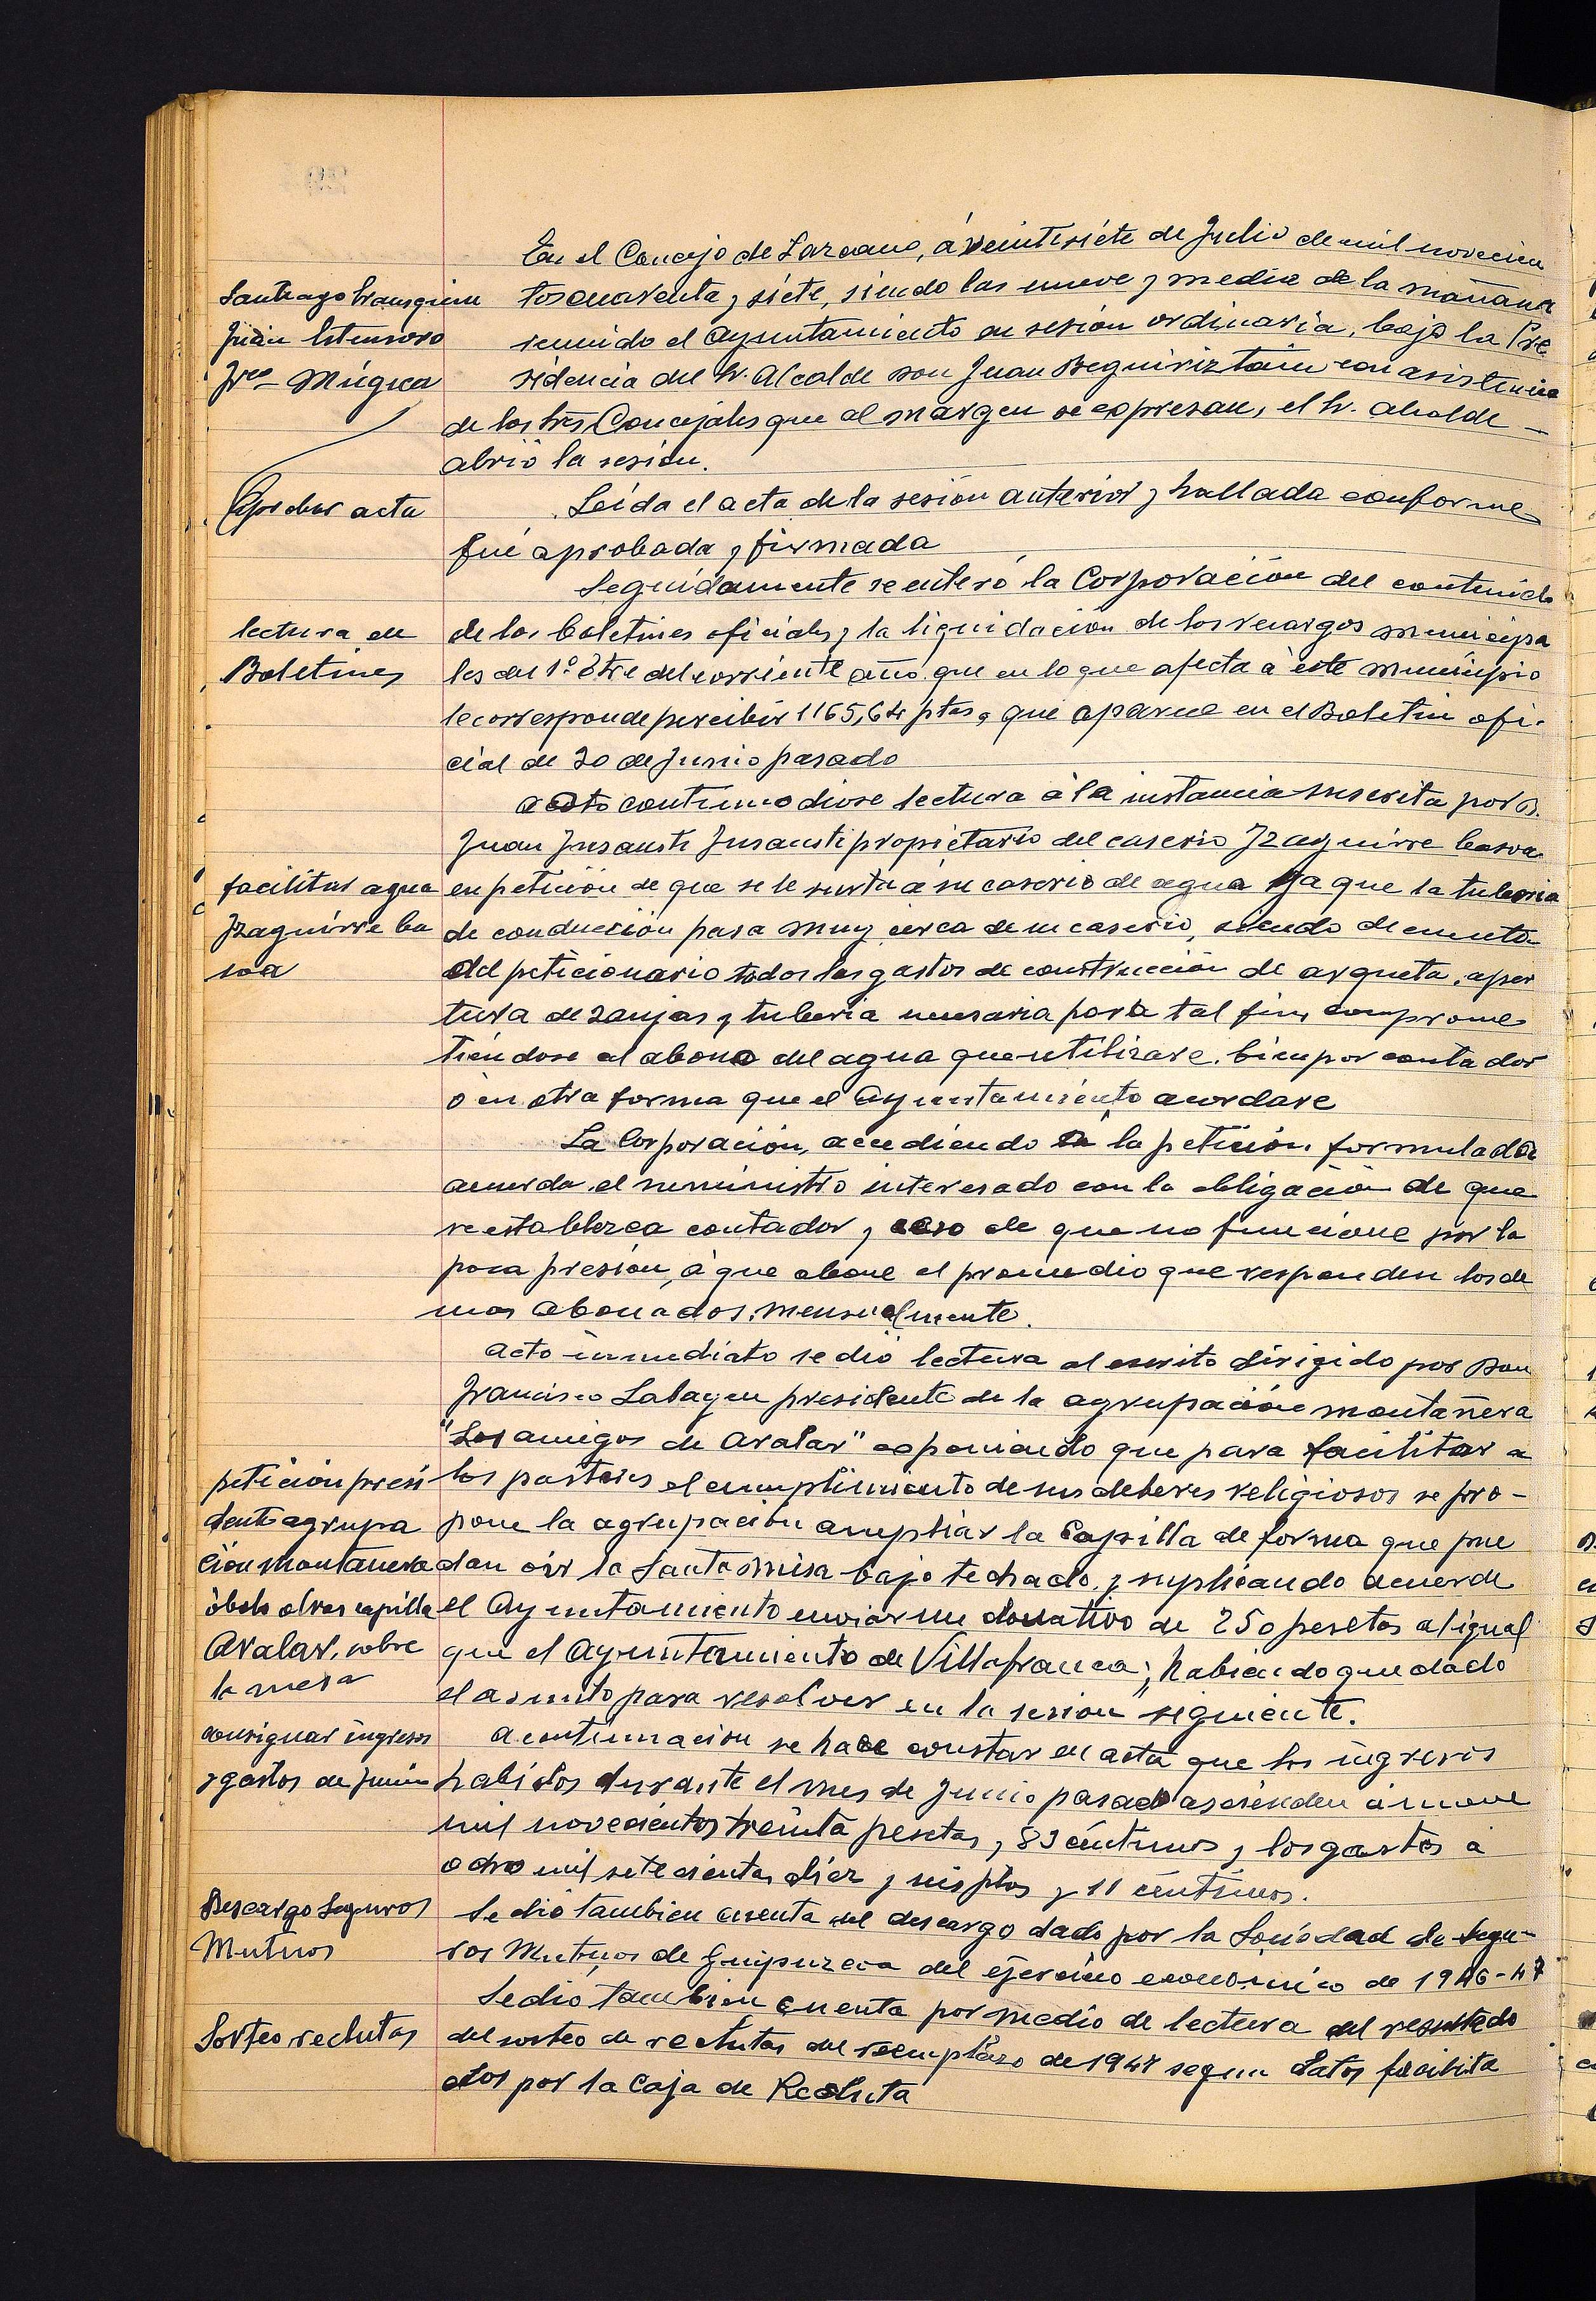 En el Concejo de Lazcano, á veintisiete de Julio de mil novecien
tos cuarenta y siete, siendo las nueve y media de la mañana
reunido el Ayuntamiento en sesión ordinaria, bajo la Pre
sidencia del Sr. Alcalde Don Juan Beguiriztain con asistencia
de los tres Concejales que al margen se expresan, el Sr. Alcalde
abrió la sesión.
Santiago
Juan
Frco Múgica
Aprobar acta
Leida el acta de la sesión anterior y hallada conforme
fué aprobada y firmada
Seguidamente se enteró la Corporación del contenido
lectura de
Boletines
de los boletines oficiales y la liquidación de los recargos municipa
les del 1º del corriente año que en lo que afecta á este municipio
le corresponde percibir 1165,64 ptas, que aparece en el Boletin ofi-
cial de 30 de Junio pasado
acto continuo diose lectura á la instancia suscrita por D.
Juan Insausti Insausti propietario del caserio Izaguirre basoa
facilitar agua
Izaguirre ba
soa
en petición de que se le surta á su caserio de agua ya que la tuberia
de conducción pasa muy cerca de su caserio, siendo de cuenta
del peticionario todos los gastos de construcción de arqueta, aper
tura de zanjas y tuberia necesaria para tal fin, comprome
tiéndose al abono del agua que utilizare, bien por contador
ó en otra forma que el Ayuntamiento acordare
La Corporación, accediendo á la petición formulada
acuerda el suministro interesado con la obligación de que
se establezca contador, y caso de que no funcione por la
poca presión, á que abone el promedio que responden los de
mas abonados, mensualmente.
Acto inmediato se dió lectura al escrito dirigido por Don
Francisco Labayen presidente de la agrupación montañera
"Los amigos de Aralar" exponiendo que para facilitar a
petición presi
dente agrupa
ción montañera
óbolo obras capilla
Aralar, sobre
la mesa
los pastores el cumplimiento de sus deberes religiosos se pro-
pone la agrupación ampliar la Capilla de forma que pue
dan oir la Santa misa bajo techado, y suplicando acuerde
el Ayuntamiento enviar un donativo de 250 pesetas al igual
que el Ayuntamiento de Villafranca; habiendo quedado
el asunto para resolver en la sesión siguiente.
consignar ingresos
y gastos de Junio
A continuación se hace constar en acta que los ingresos
habidos durante el mes de Junio pasado ascienden á nueve
mil novecientos treinta pesetas y 83 céntimos y los gastos á
ocho mil setecientas diez y seis ptas y 11 céntimos.
Descargo Seguros
Mutuos
Se dió tambien cuenta del descargo dado por la Sociedad de Segu-
ros Mutuos de Guipuzcoa del ejercicio economico de 1946-47
Sorteo reclutas
Se dió tambien cuenta por medio de lectura del resultado
del sorteo de reclutas del reemplazo de 1947 segun datos facilita
dos por la Caja de Recluta